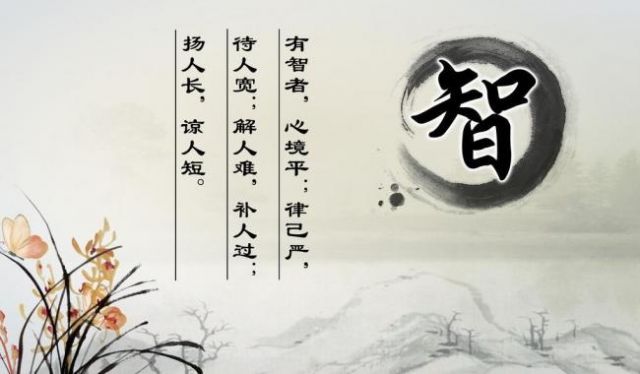 智
有智者，心境平；律己严，
待人宽；解人难，补人过；
扬人长，谅人短。